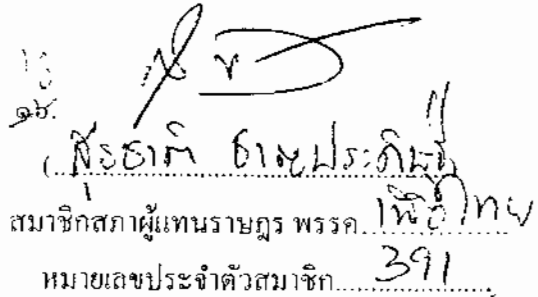 ๑๖.
(สุรชาติ ชาญประดิษฐ์
สมาชิกสภาผู้แทนราษฎร พรรค เพื่อไทย
หมายเลขประจำตัวสมาชิก 391